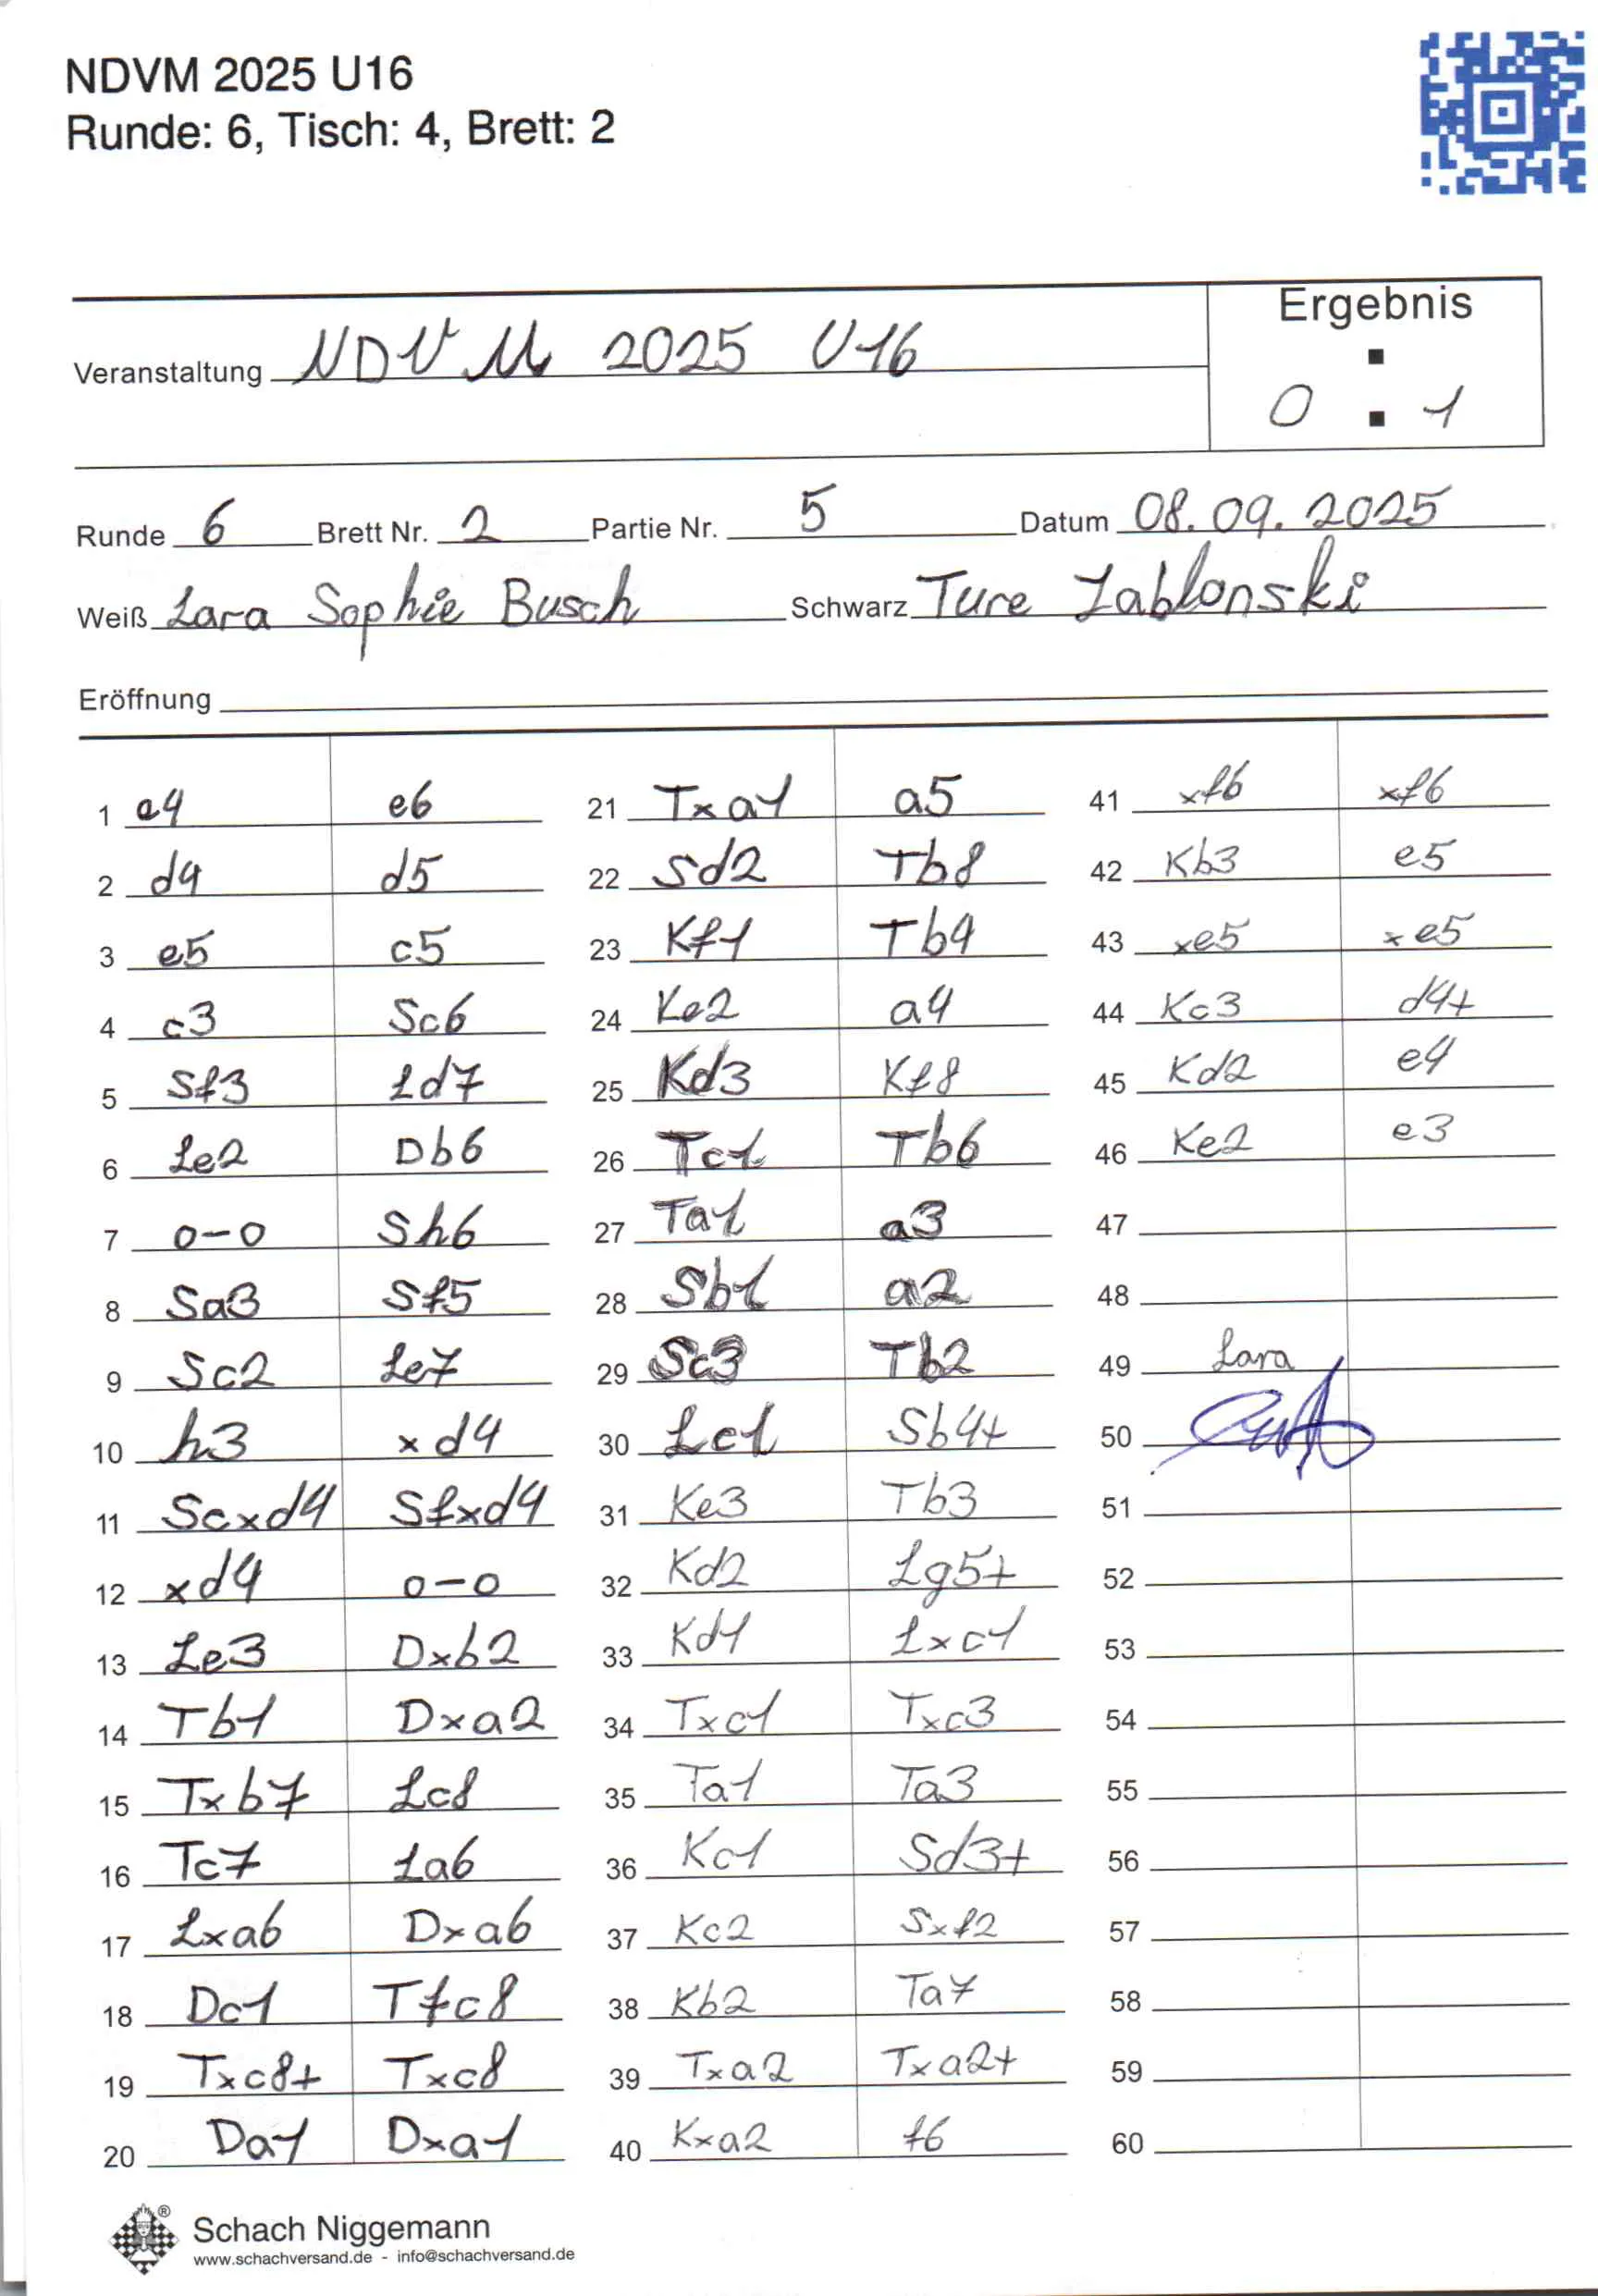 NDVM 2025 U16
Runde: 6, Tisch: 4, Brett: 2
Ergebnis
Veranstaltung NDVM 2025 U16
0 : 1
Runde 6 Brett Nr. 2 Partie Nr. 5 Datum 08.09.2025
Weiß Lara Sophie Busch Schwarz Ture Jablonski
Eröffnung
1 e4 e6
2 d4 d5
3 e5 c5
4 c3 Sc6
5 Sf3 Ld7
6 Le2 Db6
7 0-0 Sh6
8 Sa3 Sf5
9 Sc2 Le7
10 h3 xd4
11 Scxd4 Sfxd4
12 xd4 0-0
13 Le3 Dxb2
14 Tb1 Dxa2
15 Txb7 Lc8
16 Tc7 La6
17 Lxa6 Dxa6
18 Dc1 Tfc8
19 Txc8+ Txc8
20 Da1 Dxa1
21 Txa1 a5
22 Sd2 Tb8
23 Kf1 Tb4
24 Ke2 a4
25 Kd3 Kf8
26 Tc1 Tb6
27 Ta1 a3
28 Sb1 a2
29 Sc3 Tb2
30 Lc1 Sb4+
31 Ke3 Tb3
32 Kd2 Lg5+
33 Kd1 Lxc1
34 Txc1 Txc3
35 Ta1 Ta3
36 Kc1 Sd3+
37 Kc2 Sxf2
38 Kb2 Ta7
39 Txa2 Txa2+
40 Kxa2 f6
41 xf6 xf6
42 Kb3 e5
43 xe5 xe5
44 Kc3 d4+
45 Kd2 e4
46 Ke2 e3
47
48
49 Lara
50
51
52
53
54
55
56
57
58
59
60
Schach Niggemann ®
www.schachversand.de - info@schachversand.de